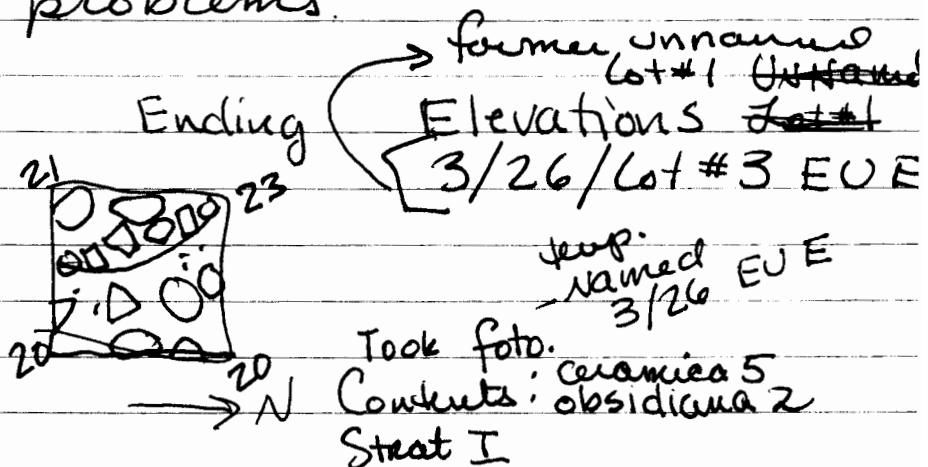 problems.
former unnamed
Lot #1 Unnamed
Ending Elevations Lot #1
3/26/Lot #3 EU E
21 23
temp.
named EU E
3/26
20 20
Took foto.
N Contents: ceramica 5
obsidiana 2
Strat I